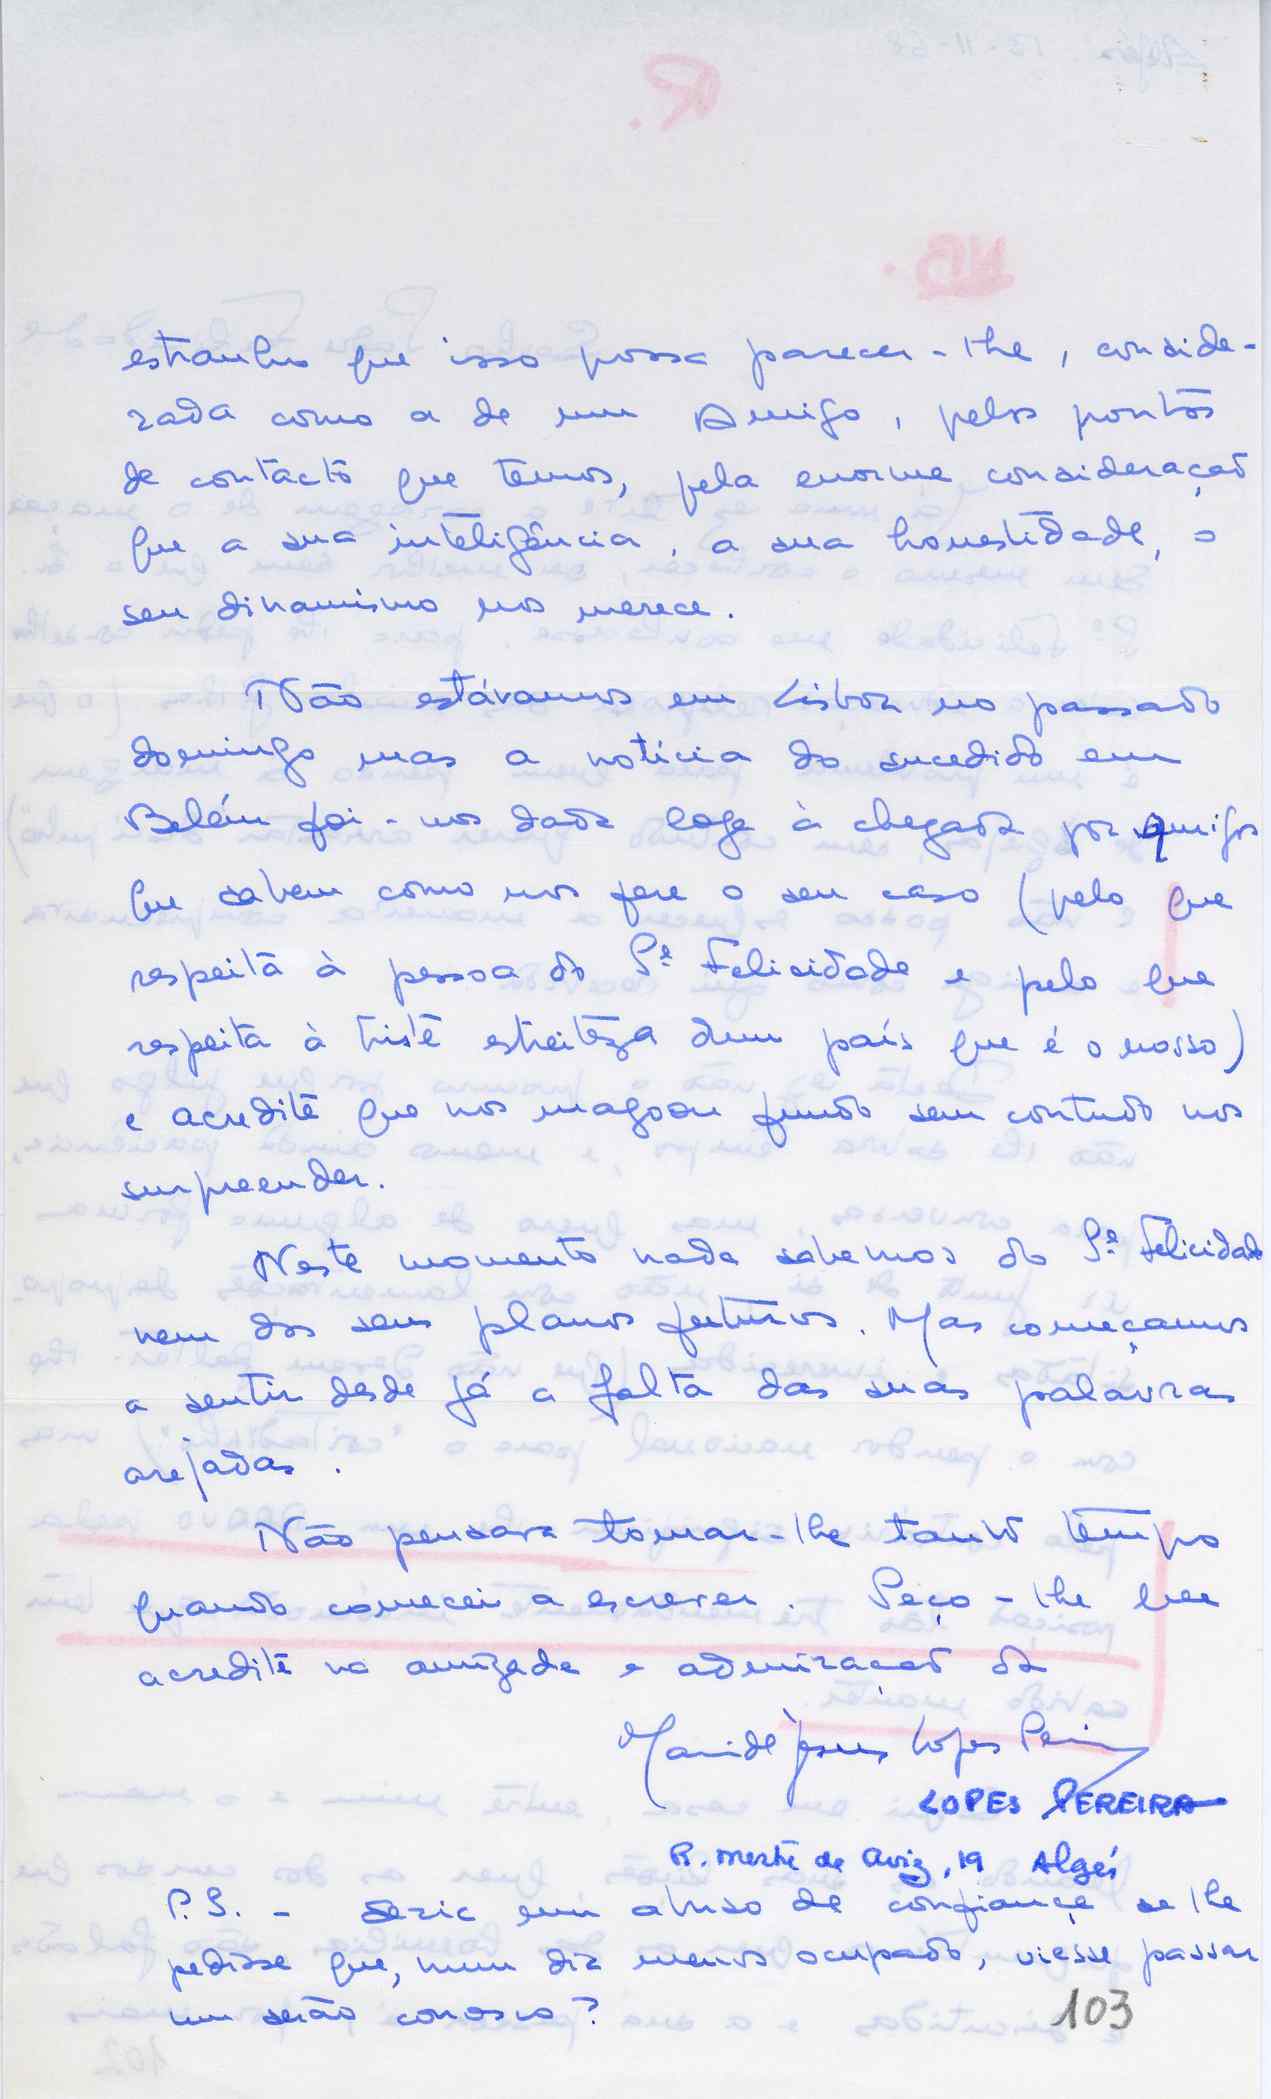 estranho que isso possa parecer-lhe, conside-
rada como a de um Amigo, pelos pontos
de contacto que temos, pela enorme consideração
que a sua inteligência, a sua honestidade, o
seu dinamismo nos merece.
Não estávamos em Lisboa no passado
domingo mas a notícia do sucedido em
Belém foi-nos dada logo à chegada por amigos
que sabem como nos fere o seu caso (pelo que
respeita à pessoa do Pe. Felicidade e pelo que
respeita à triste estreiteza dum país que é o nosso)
e acredite que nos magoou fundo sem contudo nos
surpreender.
Neste momento nada sabemos do Pe. Felicidade
nem dos seus planos futuros. Mas começamos
a sentir desde já a falta das suas palavras
arejadas.
Não pensava tomar-lhe tanto tempo
quando comecei a escrever. Peço-lhe que
acredite na amizade e admiração da
Maria de Jesus Lopes Pereira
LOPES PEREIRA
R. Mestre de Aviz, 19 Algés
P.S. - Seria um abuso de confiança se lhe
pedisse que, num dia menos ocupado, viesse passar
um serão conosco?
103